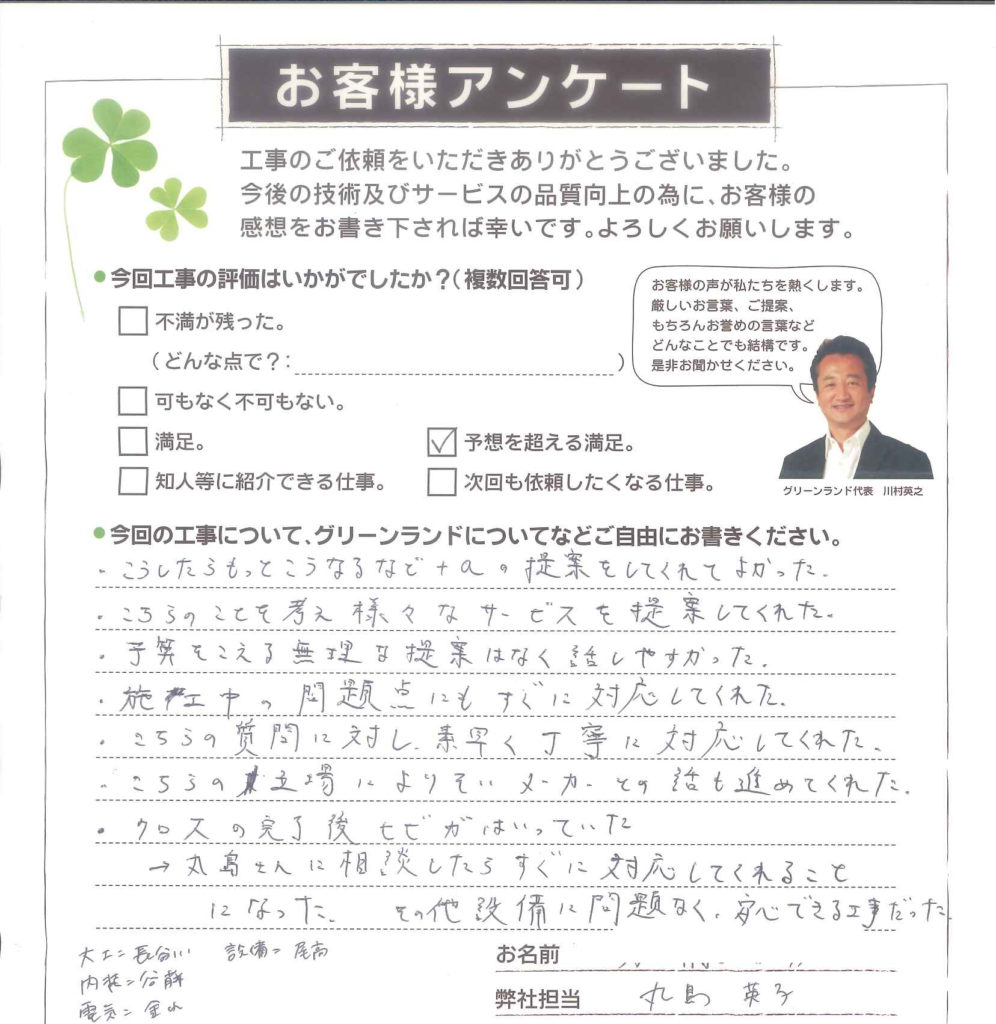 お客様アンケート
工事のご依頼をいただきありがとうございました。
今後の技術及びサービスの品質向上の為に、お客様の
感想をお書き下されば幸いです。よろしくお願いします。
●今回工事の評価はいかがでしたか？（複数回答可）
□不満が残った。
（どんな点で？：　）
□可もなく不可もない。
□満足。
☑予想を超える満足。
□知人等に紹介できる仕事。
□次回も依頼したくなる仕事。
お客様の声が私たちを熱くします。
厳しいお言葉、ご提案、
もちろんお誉めの言葉など
どんなことでも結構です。
是非お聞かせください。
グリーンランド代表　川村英之
●今回の工事について、グリーンランドについてなどご自由にお書きください。
・こうしたらもっとこうなるなど+αの提案をしてくれてよかった。
・こちらのことを考え様々なサービスを提案してくれた。
・予算をこえる無理な提案はなく話しやすかった。
・施工中の問題点にもすぐに対応してくれた。
・こちらの質問に対し、素早く丁寧に対応してくれた。
・こちらの立場によりそいメーカーとの話も進めてくれた。
・クロスの完了後ヒビがはいっていた
→丸島さんに相談したらすぐに対応してくれること
になった。その他設備に問題なく、安心できる工事だった。
大工＝長谷川　設備＝尾高
内装＝
電気＝
お名前
弊社担当　丸島　英子